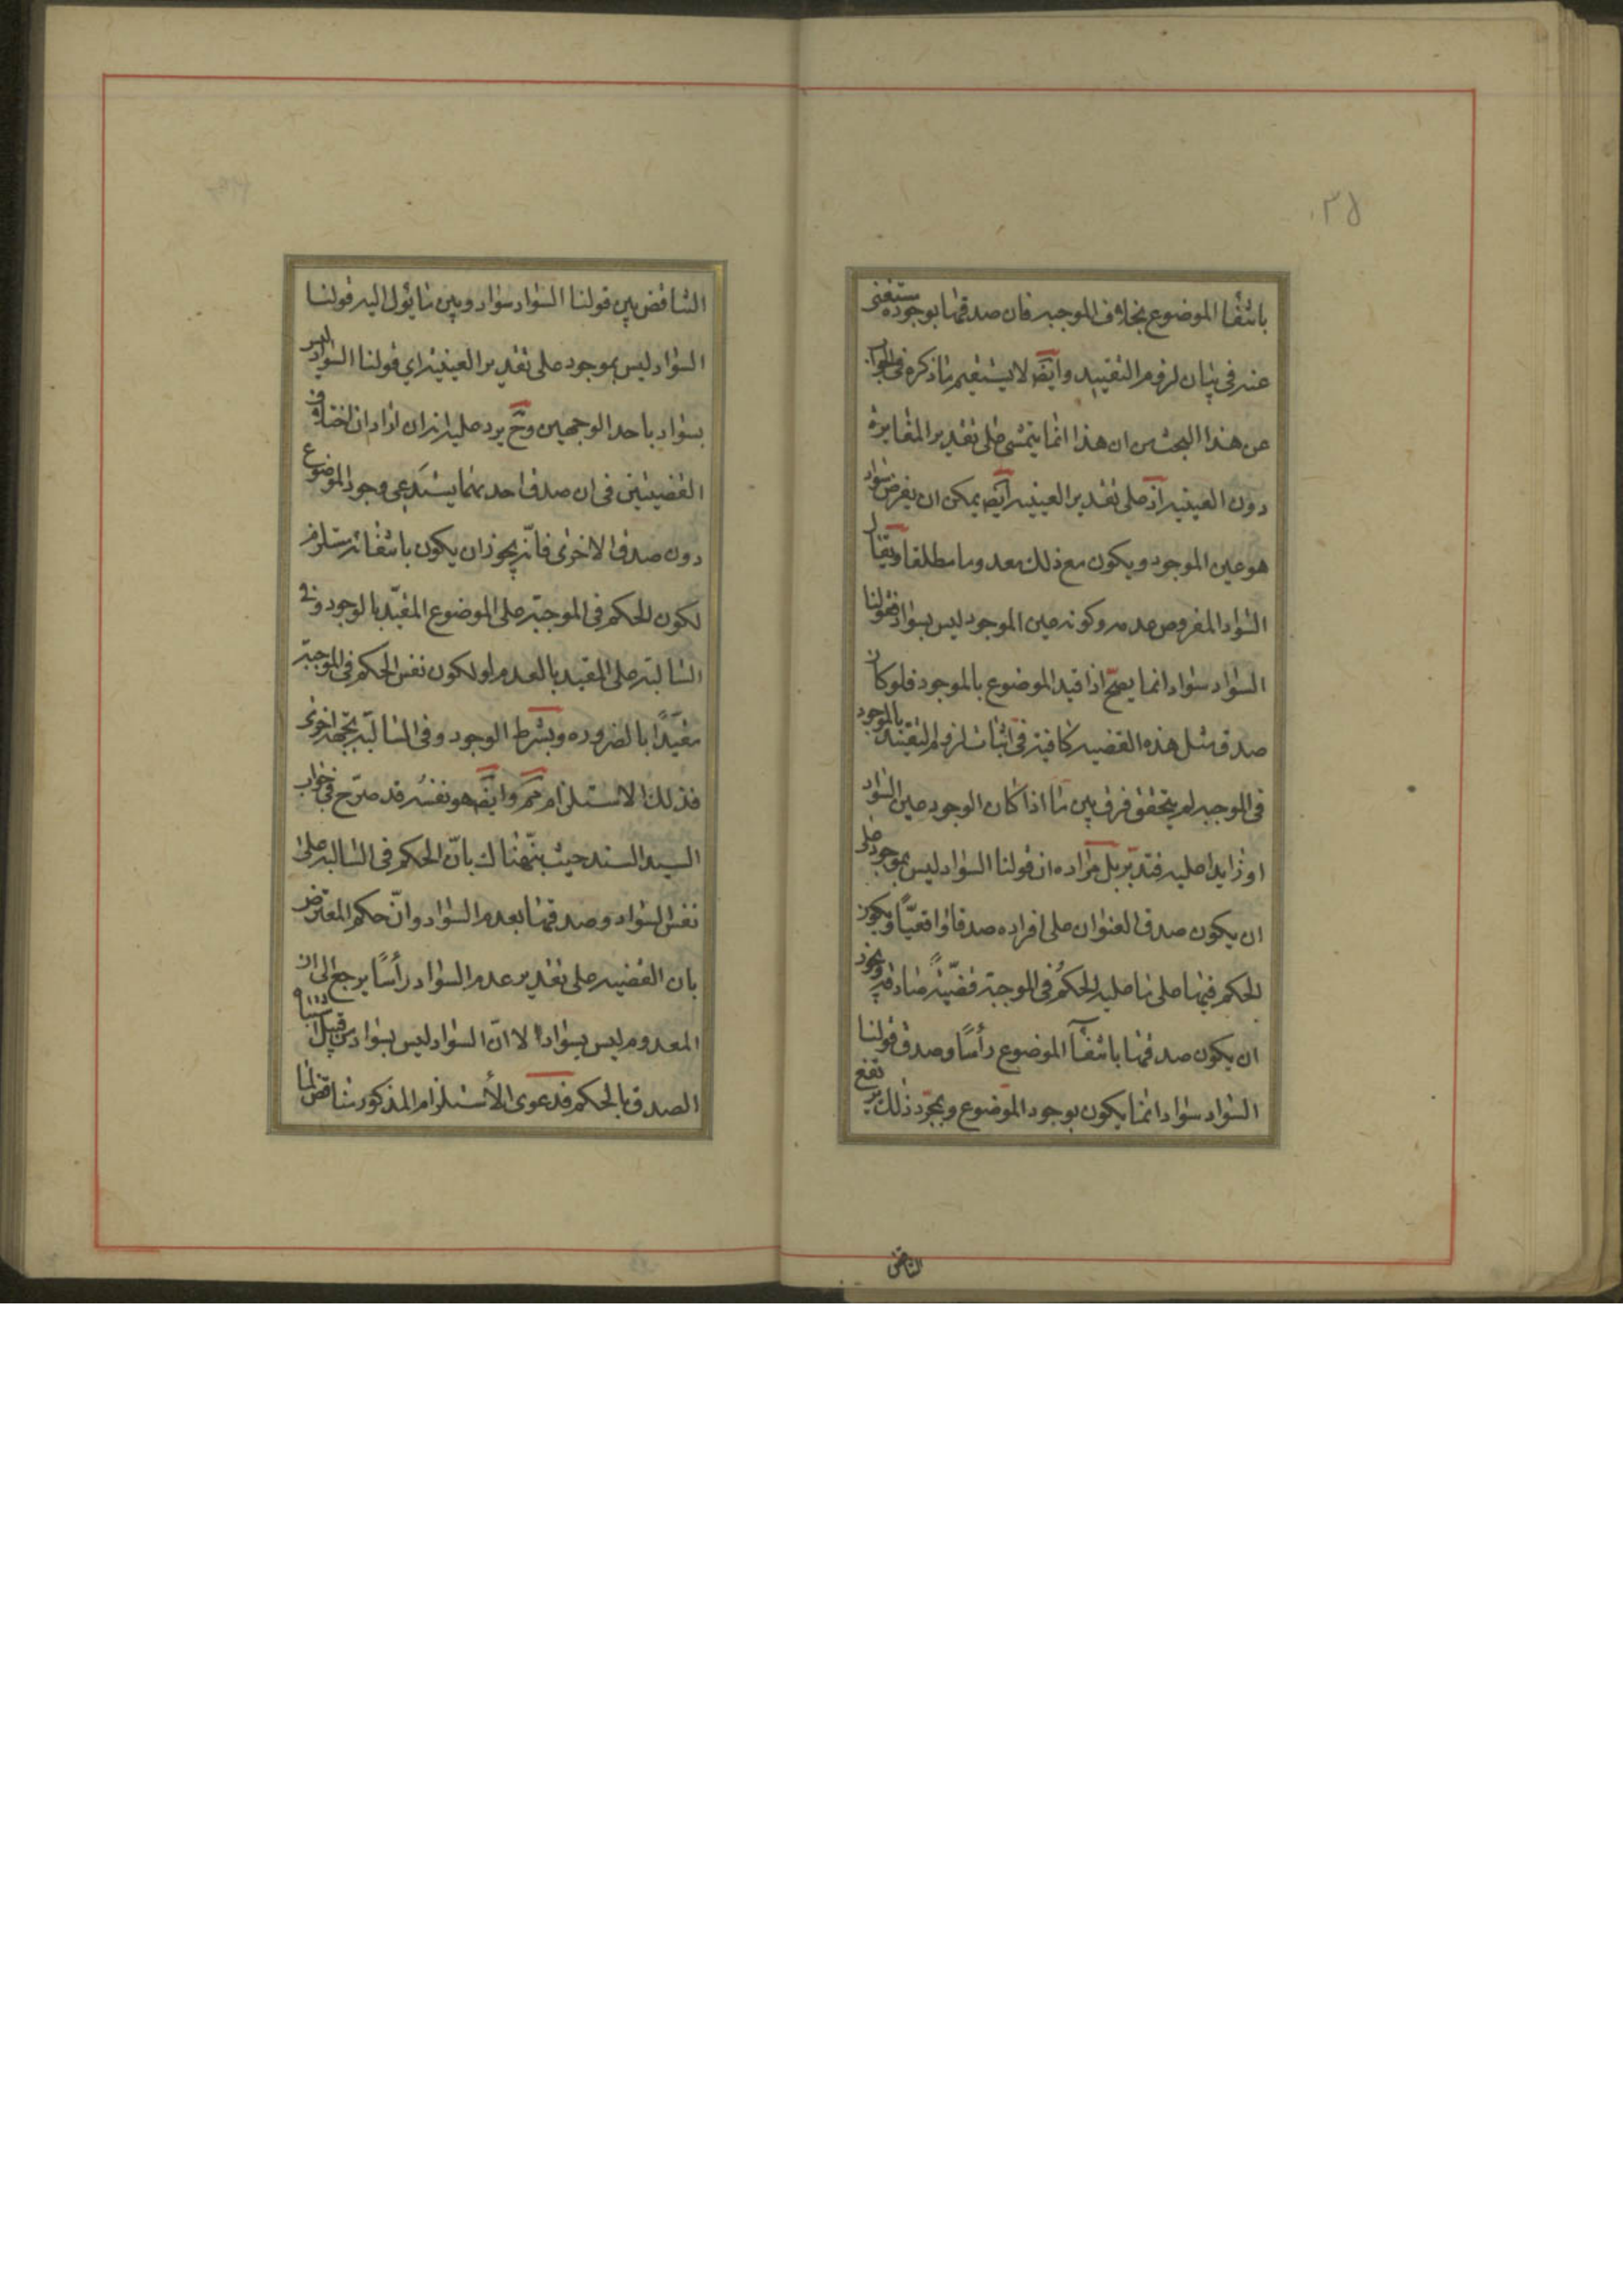 ٣٥
بانتفا الموضوع بخلاف الموجبه فان صدقها بوجوده مستغنى
عنه فى بيان لزوم التقييد وايضَ لا يستقيم ما ذكره فى الجواب
عن هذا البحث من ان هذا انما يتمشى على تقدير المغايرة
دون العينيه اذ على تقدير العينيه ايضَ يمكن ان يفرض سواد
هو عين الموجود ويكون مع ذلك معدوما مطلقا ويقال
السواد المفروض عدمه وكونه عين الموجود ليس بسواد فقولنا
السواد سواد انما يصح اذا قيد الموضوع بالموجود فلو كان
صدق مثل هذه القضيه كافية فى اثبات لزوم التقييد بالموجود
فى الموجبه لم يتحقق فرق بين ما اذا كان الوجود عين السواد
او زايدا عليه فتدبر بل مراده ان قولنا السواد ليس بموجود على
ان يكون صدق العنوان على افراده صدقا واقعيّاً ويكون
الحكم فيها على ما عليه الحكمُ فى الموجبة قضيّةً صادقة ويجوز
ان يكون صدقها بانتفآ الموضوع رأسًا وصدق قولنا
السواد سواد انما يكون بوجود الموضوع وبمجرّد ذلك يرتفع
التناقض
التناقض بين قولنا السواد سواد وبين ما يؤل اليه قولنا
السواد ليس بموجود على تقدير العينية اي قولنا السواد ليس
بسواد باحد الوجهين وحَ يرد عليه انه ان اراد ان اختلاف
القضيتين فى ان صدق احد منهما يستدعى وجود الموضوع
دون صدق الاخرى فانّه يجوز ان يكون بانتفائه مستلزم
لكون الحكم فى الموجبة على الموضوع المقيّد بالوجود وفى
السالبة على المقيد بالعدم او لكون نفس الحكم فى الموجبة
مقيدًا بالضروره وبشرط الوجود وفى السالبة بجهة اخرى
فذلك الاستلزام مم وايضَ هو نفسُه قد صرّح فى جواب
السيد السند حيث بنّه هناك بانّ الحكم فى السالبه على
نفس السواد وصدقها بعدم السواد وانّ حكم المعترض
بان القضيه على تقدير عدم السواد رأسًا يرجع الى ان
المعدوم ليس بسواد لا انّ السواد ليس بسواد من قبيل
الصدق بالحكم فدعوى الأستلزام المذكور تناقض لما